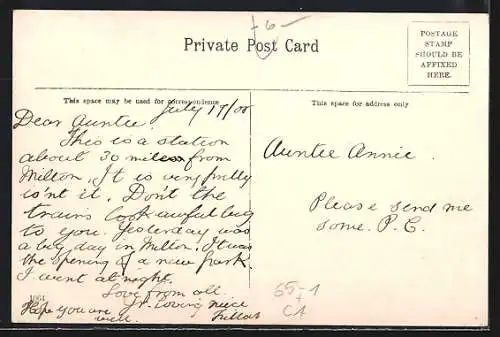 +6-
Private Post Card
POSTAGE
STAMP
SHOULD BE
AFFIXED
HERE.
This space may be used for correspondence
This space for address only
July 19/08
Dear Auntie
This is a station
about 30 miles from
Milton. It is very pretty
is'nt it. Don't the
trains look awful big
to you. Yesterday was
a big day in Milton. It was
the opening of a new park.
I went at night.
Love from all.
Yr. loving niece
Hope you are
well.
Auntie Annie.
Please send me
some. P.C.
65-1
+
C1